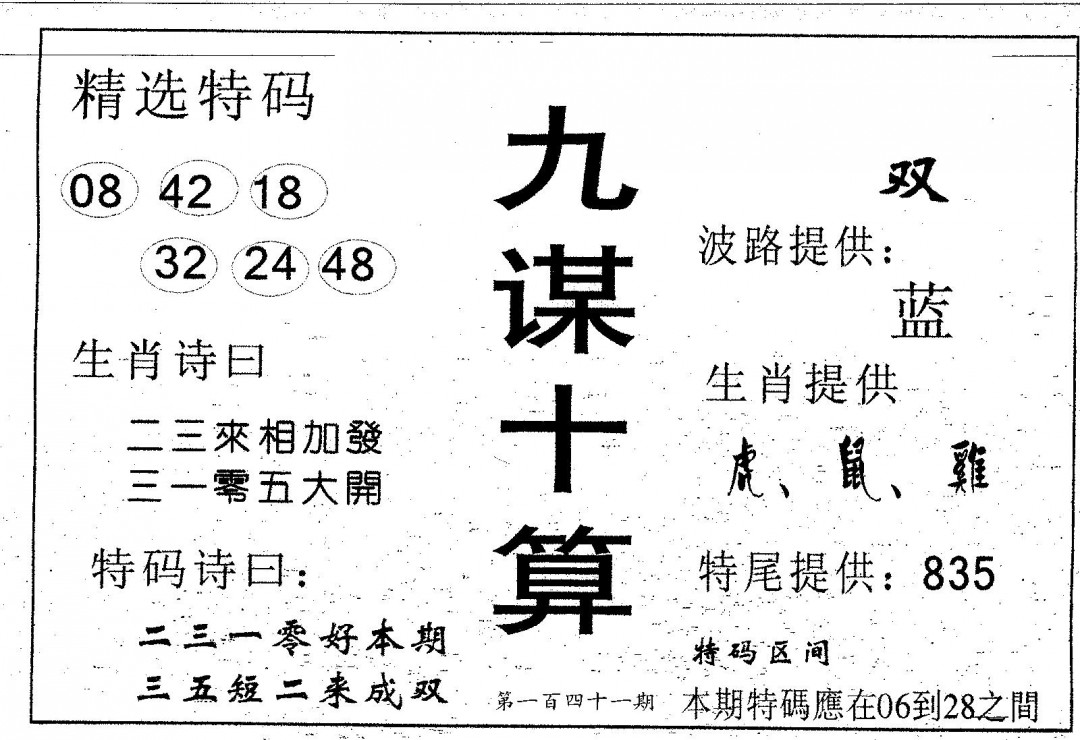 精选特码
08 42 18
32 24 48
生肖诗曰
二三來相加發
三一零五大開
特码诗曰：
二三一零好本期
三五短二来成双
九谋十算
第一百四十一期
双
波路提供：
蓝
生肖提供
虎、鼠、雞
特尾提供：835
特码区间
本期特碼應在06到28之間